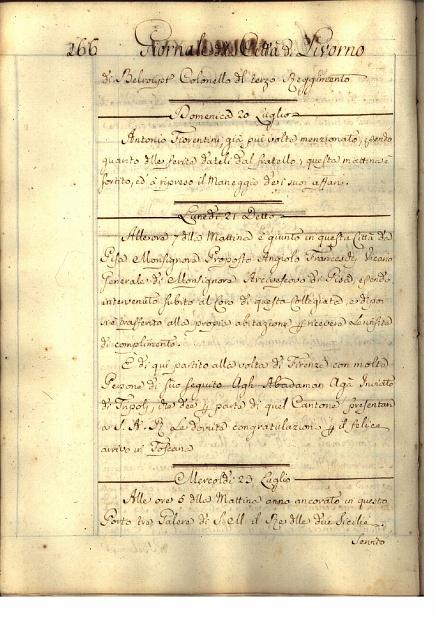 266 Giornale della Città di Livorno
di Colonello del terzo Reggimento
Domenica 20 Luglio
Antonio Fiorentini, già più volte menzionato,
quanto dalle ferite dal fratello, questa mattina è
sortito, ed à ripreso il Maneggio de suoi affari.
Lunedì 21 Detto
Alle ore 7 della Mattina è giunto in questa Città da
Pisa Monsignore Proposto Angiolo Franceschi Vicario
Generale di Monsignore Arcivescovo di Pisa, essendo
intervenuto subito al Coro di questa Collegiata, e di poi
trasferito alla propria abitazione ricevere le visite
di complimento.
È di qui partito alla volta di Firenze con molte
Persone di suo seguito Agà Inviato
di Tripoli, che dee parte di quel Cantone presentare
a S. A. R. le dovute congratulazioni il felice
arrivo in Toscana
Mercoldì 23 Luglio
Alle ore 5 della Mattina anno ancorato in questo
Porto tre Galere di S. M. il Re delle due Sicilie